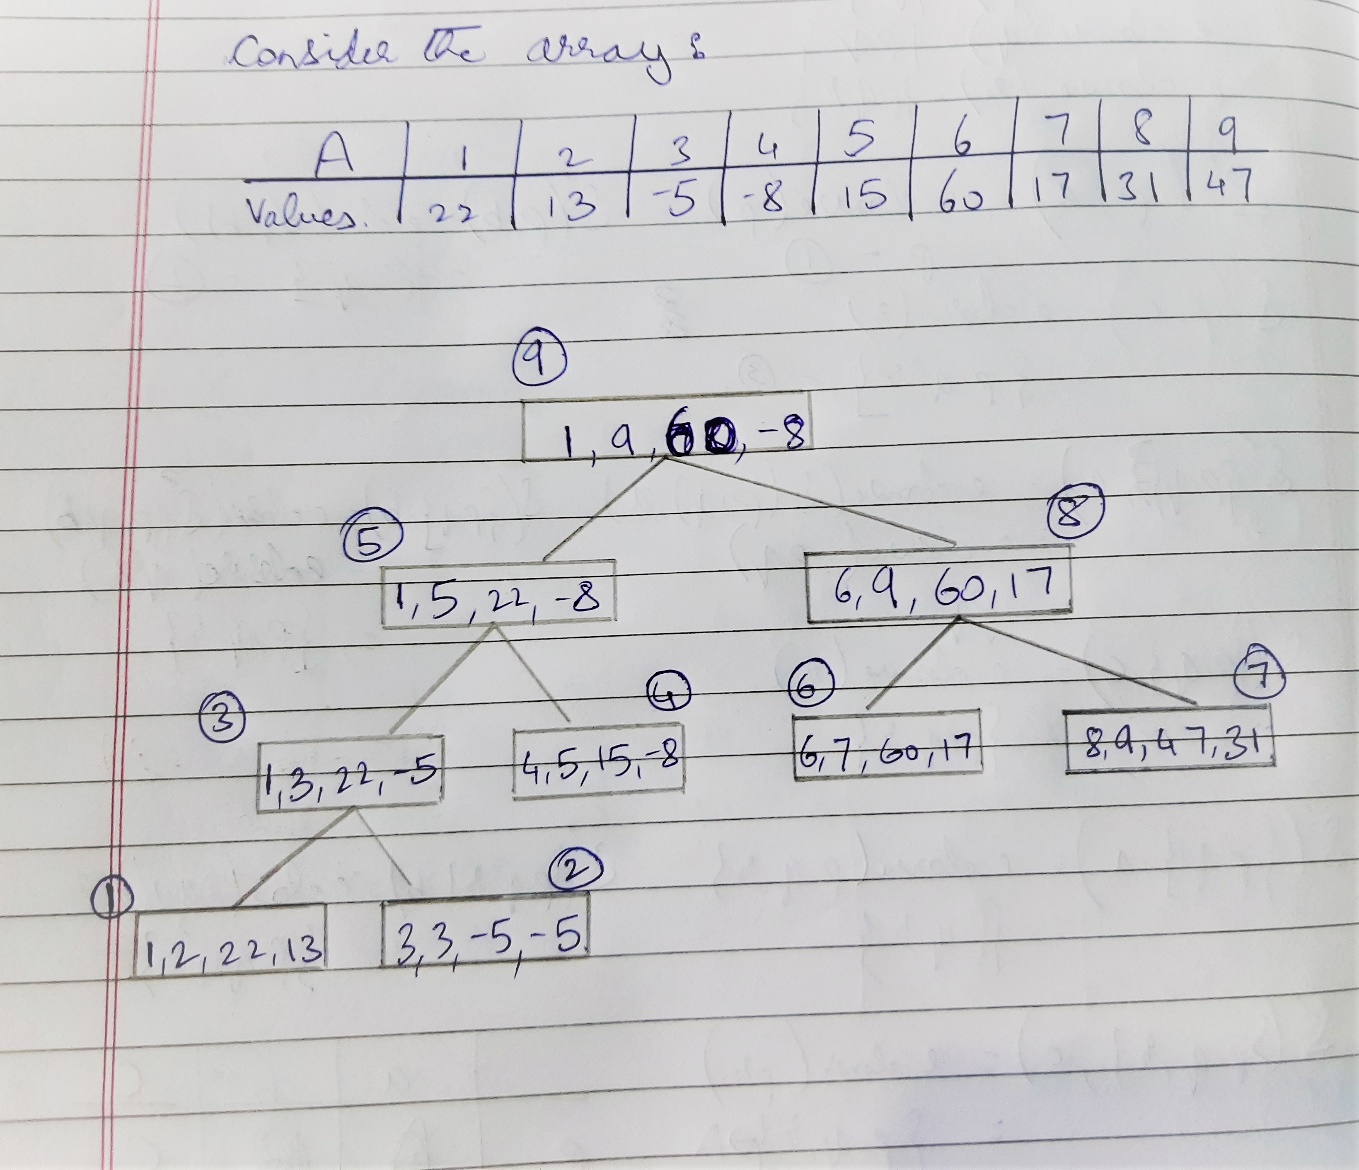 Consider the array :
A 1 2 3 4 5 6 7 8 9
Values. 22 13 -5 -8 15 60 17 31 47
9
1, 9, 60, -8
5 8
1, 5, 22, -8 6, 9, 60, 17
3 4 6 7
1, 3, 22, -5 4, 5, 15, -8 6, 7, 60, 17 8, 9, 47, 31
1 2
1, 2, 22, 13 3, 3, -5, -5